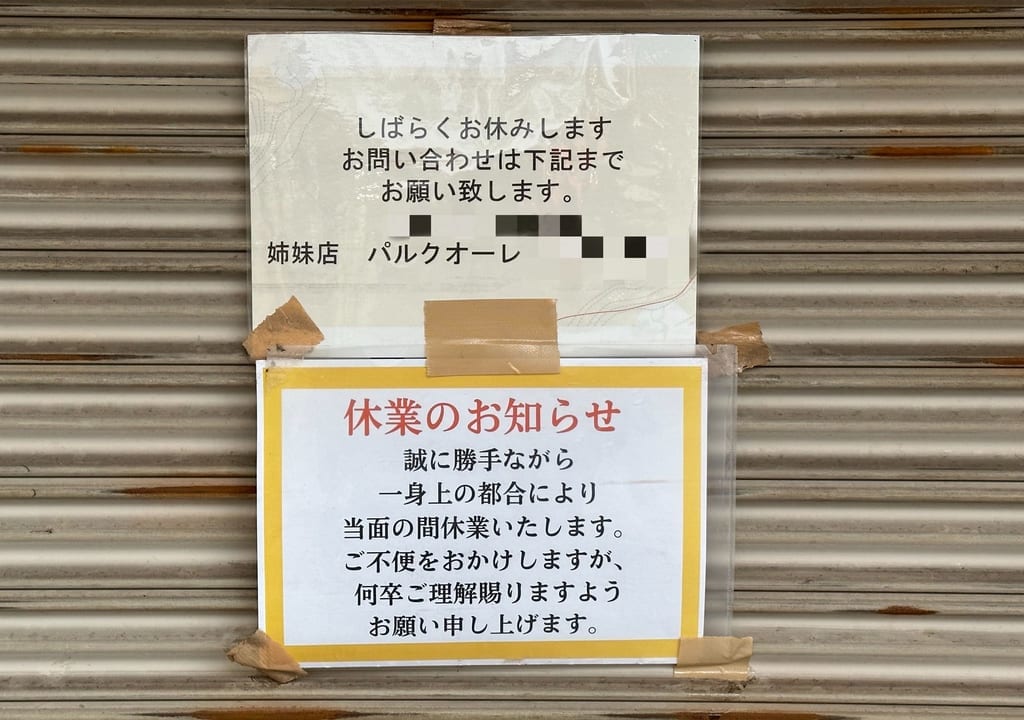 しばらくお休みします
お問い合わせは下記まで
お願い致します。
姉妹店 パルクオーレ
休業のお知らせ
誠に勝手ながら
一身上の都合により
当面の間休業いたします。
ご不便をおかけしますが、
何卒ご理解賜りますよう
お願い申し上げます。